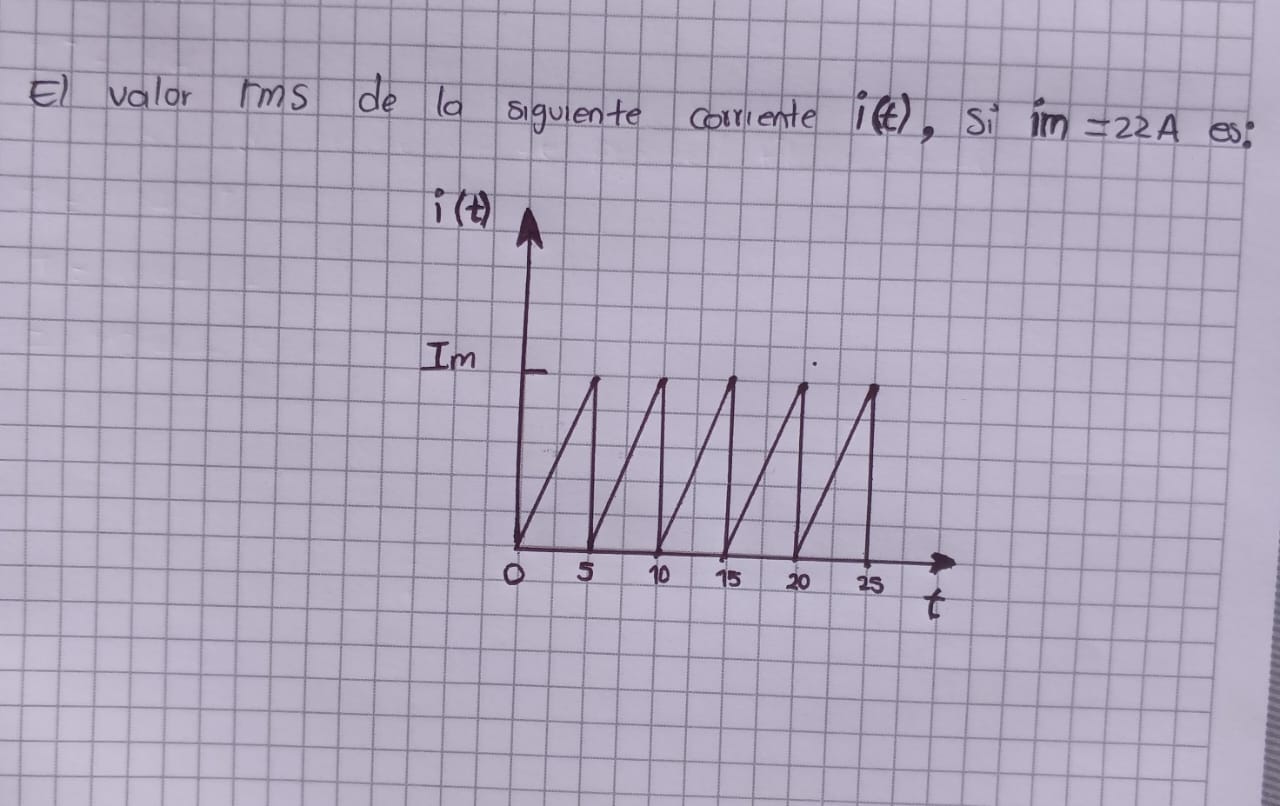 El valor rms de la siguiente corriente i(t), si im = 22A es:
i(t)
Im
0 5 10 15 20 25
t